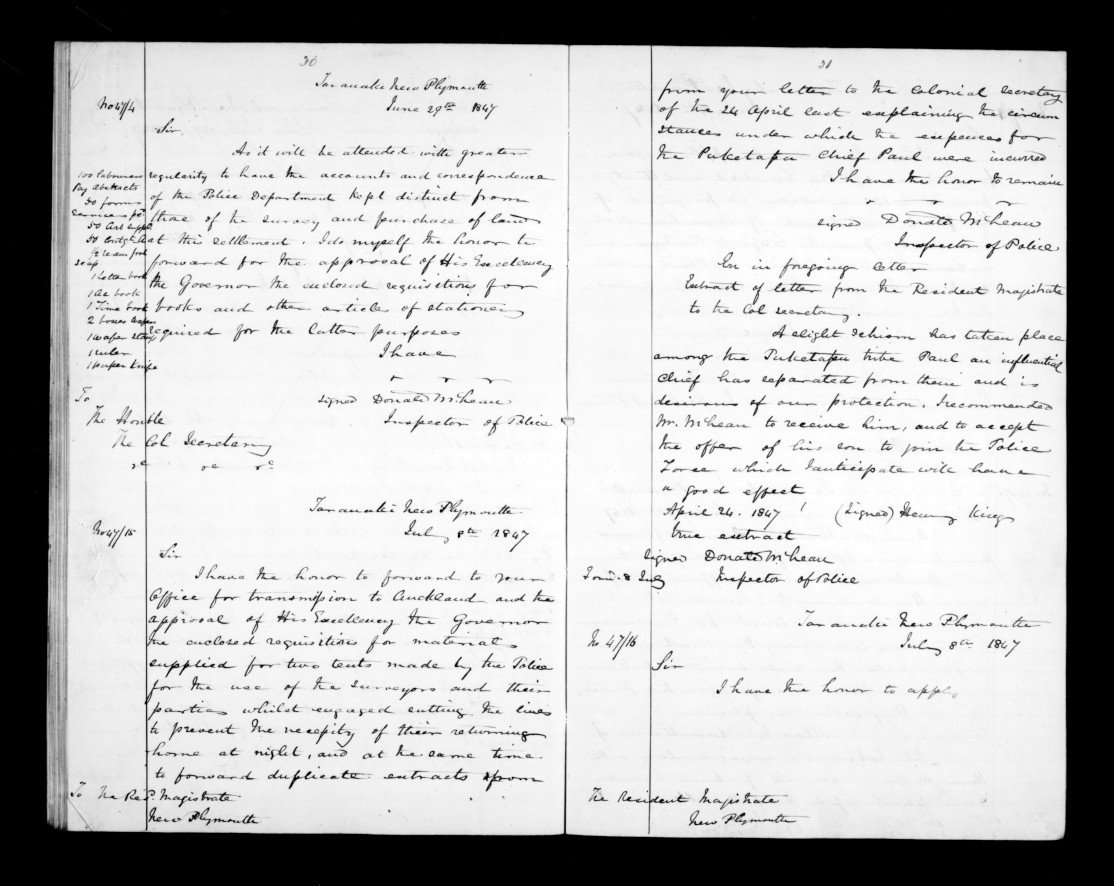 30
Taranaki New Plymouth
No 47/4
June 29th 1847
Sir
As it will be attended with greater
regularity to have the accounts and correspondence
of the Police Department kept distinct from
those of the survey and purchase of land
at this settlement. I do myself the honor to
forward for the approval of His Excellency
the Governor the enclosed requisitions for
books and other articles of stationery
required for the latter purposes
I have
100 Labourers
Pay abstracts
50 forms
50
50
1 Letter book
1 Ac book
1 Time book
2 boxes
1 wafer
1 ruler
1 paper knife
signed Donald McLean
Inspector of Police
To
The Honble
The Col Secretary
&c &c &c
Taranaki New Plymouth
No 47/15
July 8th 1847
Sir
I have the honor to forward to your
Office for transmission to Auckland and the
approval of His Excellency the Governor
the enclosed requisition for materials
supplied for two tents made by the Police
for the use of the surveyors and their
parties whilst engaged cutting the lines
to prevent the necessity of their returning
home at night, and at the same time
to forward duplicate extracts from
To The Rest. Magistrate
New Plymouth
31
from your letter to the Colonial Secretary
of the 24 April last explaining the circum
stances under which the expences for
the Puketapu Chief Paul were incurred
I have the honor to remain
signed Donald McLean
Inspector of Police
In foregoing letter
Extract of letter from the Resident Magistrate
to the Col Secretary.
A slight schism has taken place
among the Puketapu tribe Paul an influential
Chief has separated from them and is
desirous of our protection. I recommended
Mr. McLean to receive him, and to accept
the offer of his son to join the Police
Force which I anticipate will have
a good effect
April 24. 1847 (signed) Henry King
true extract
signed Donald McLean
8 July Inspector of Police
Taranaki New Plymouth
No 47/16
July 8th 1847
Sir
I have the honor to apply
The Resident Magistrate
New Plymouth